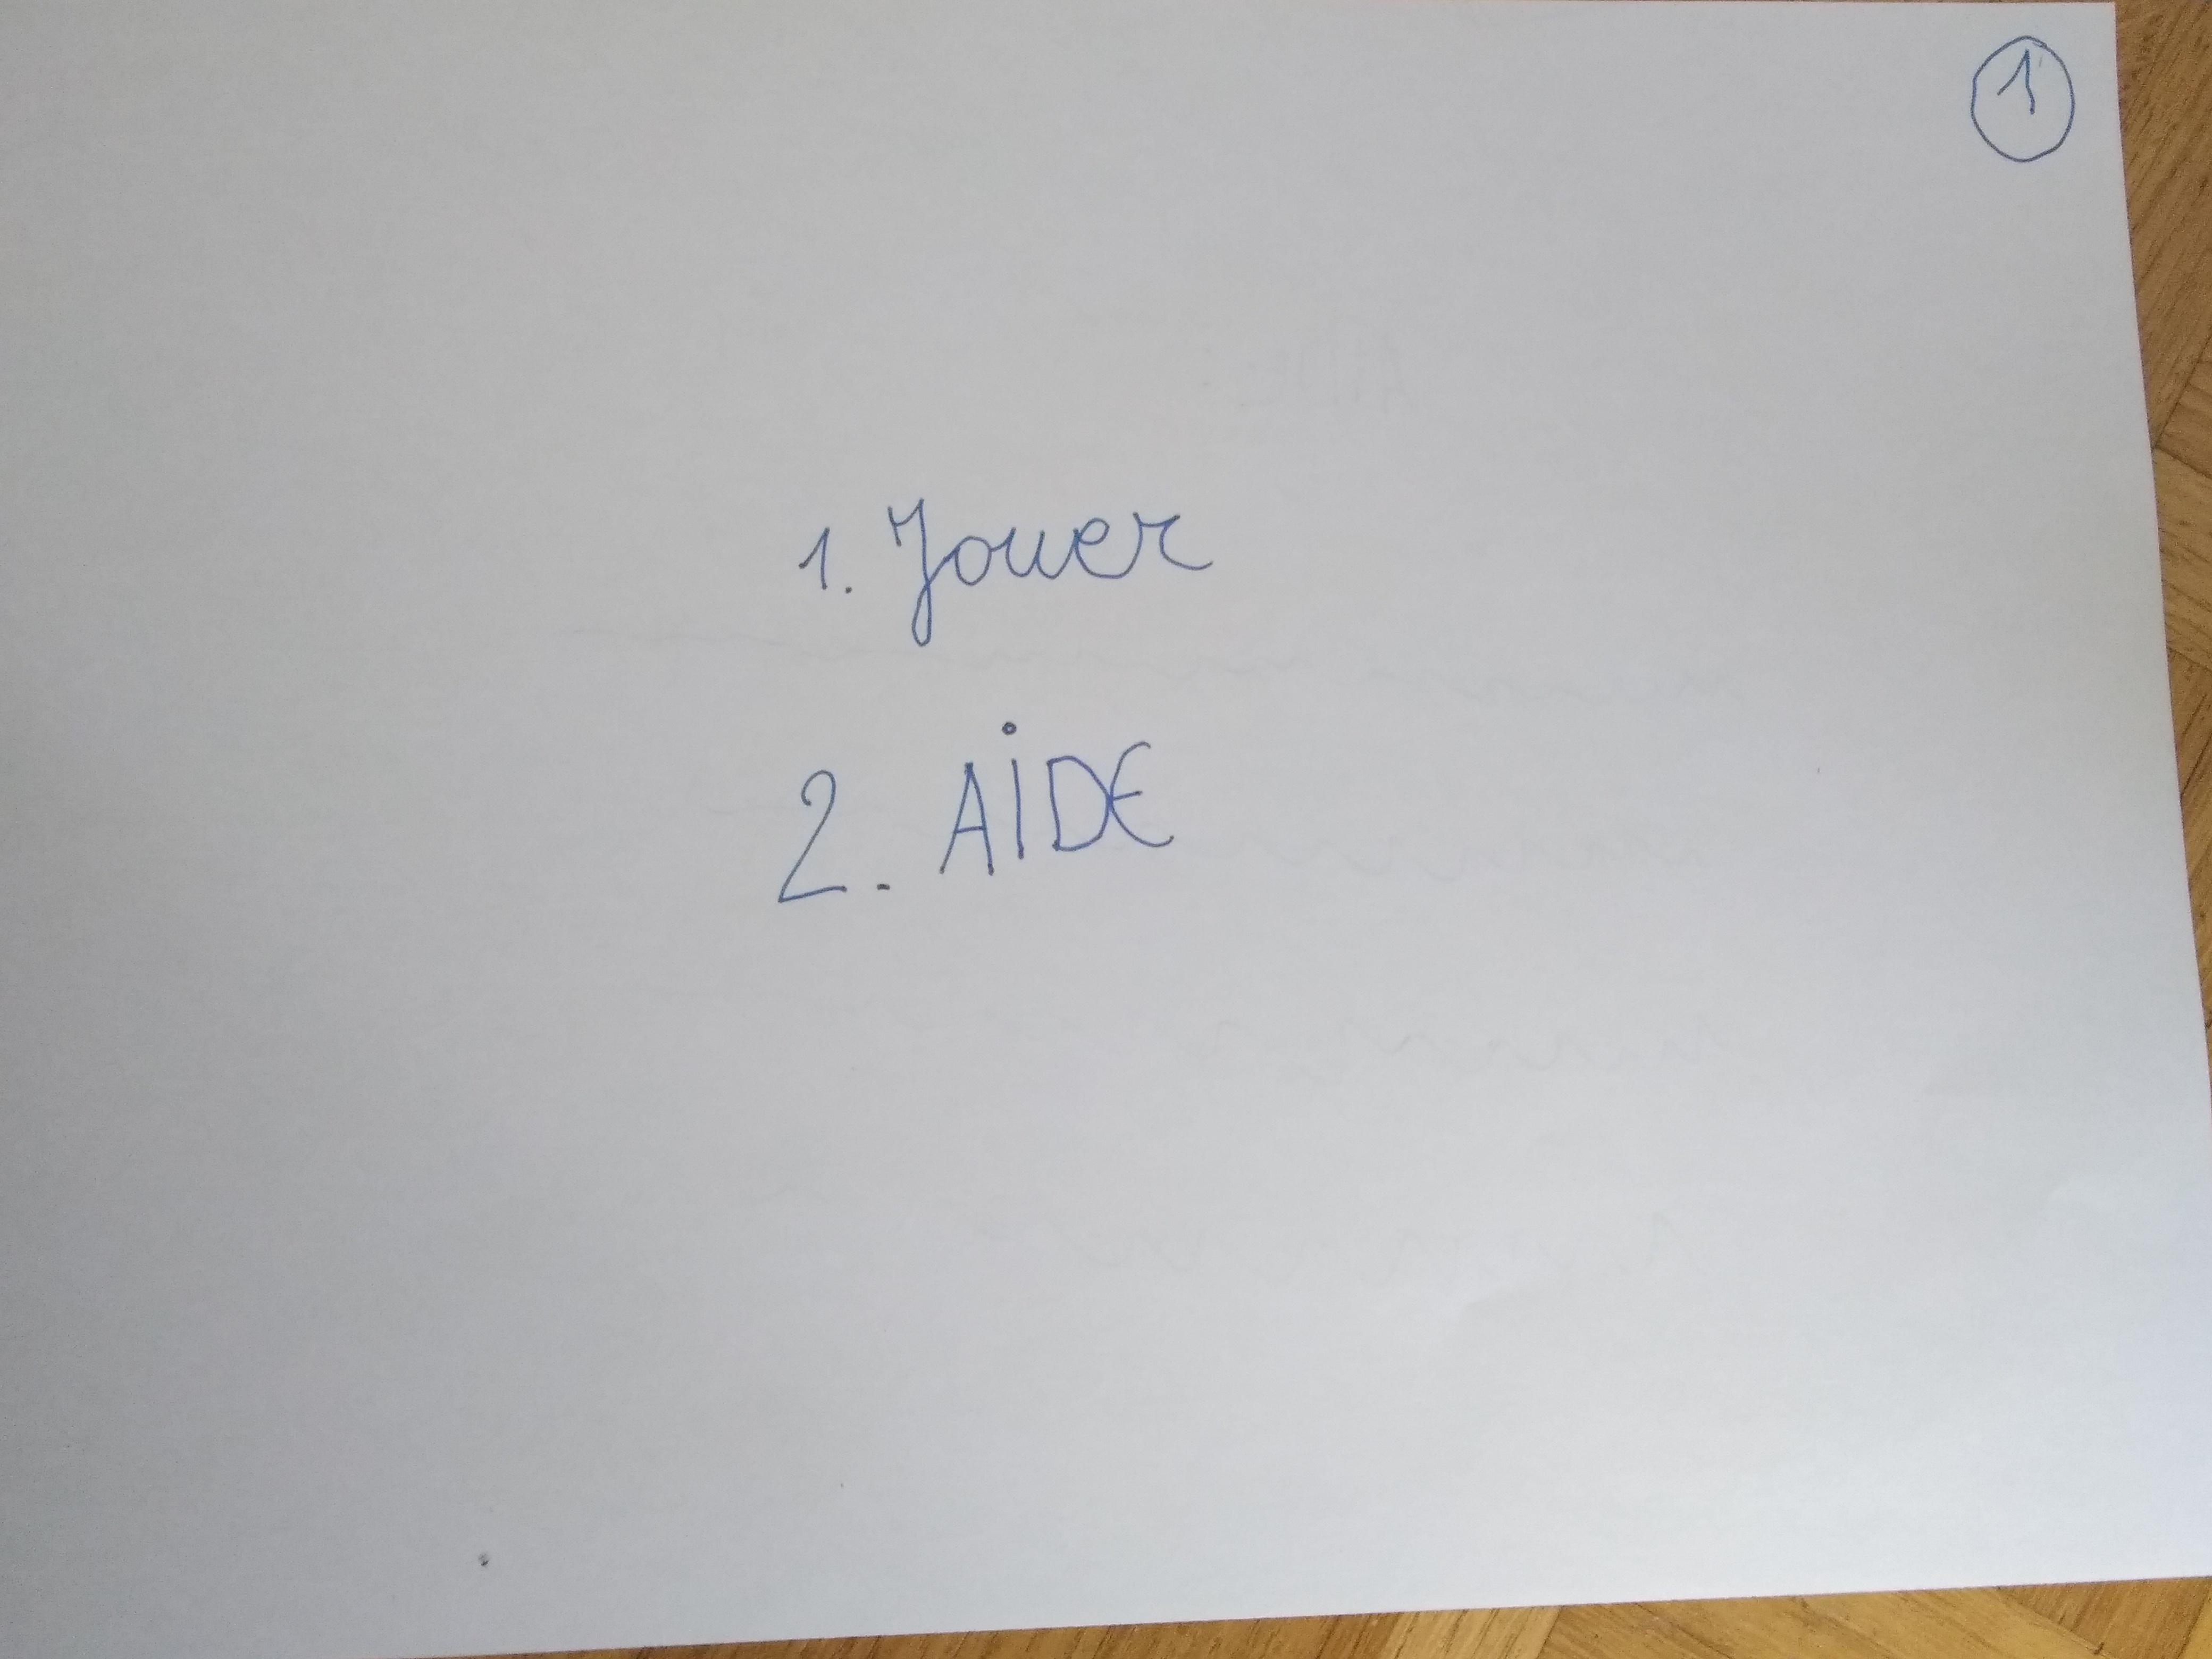 1
1. Jouer
2. AiDE